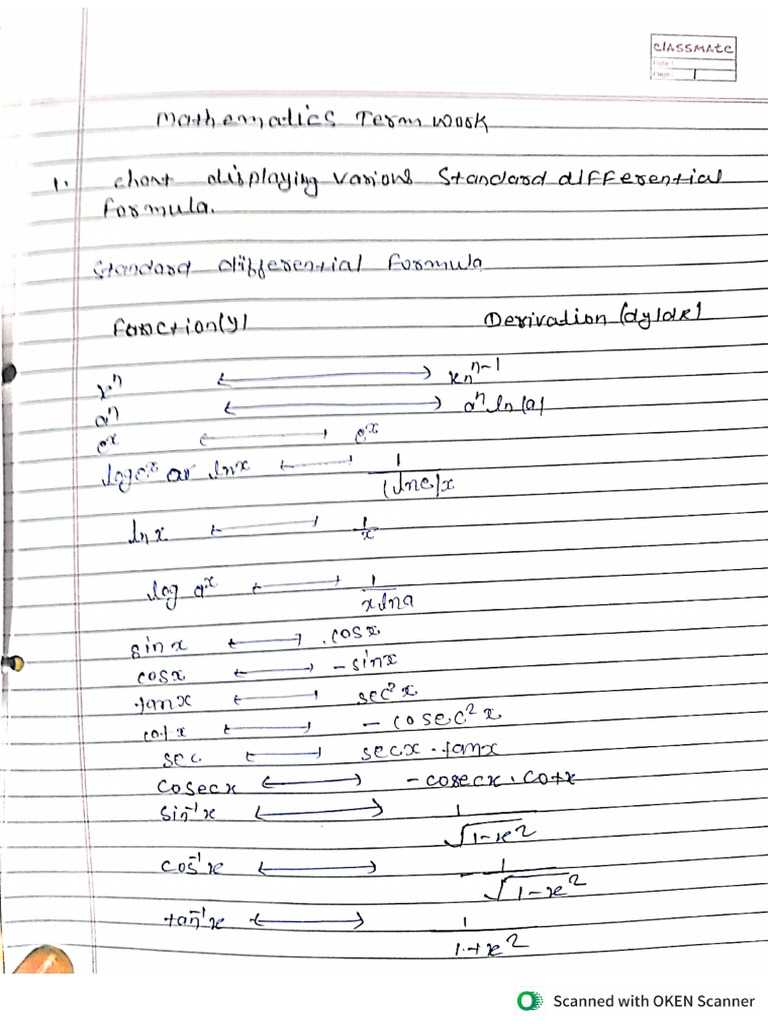 classmate
Page 1
Mathematics Term work
1. chart displaying various Standard differential
formula.
Standard differential formula
Function(y) Derivation (dy/dx)
xⁿ ⟷ xnⁿ⁻¹
aⁿ ⟷ aⁿ ln(a)
eˣ ⟷ eˣ
logeˣ or lnx ⟷ 1/(lne)x
lnx ⟷ 1/x
log aˣ ⟷ 1/xlna
sinx ⟷ cosx
cosx ⟷ -sinx
tanx ⟷ sec²x
cotx ⟷ -cosec²x
sec ⟷ secx.tanx
cosecx ⟷ -cosecx.cotx
sin⁻¹x ⟷ 1/√1-x²
cos⁻¹x ⟷ -1/√1-x²
tan⁻¹x ⟷ 1/1+x²
Scanned with OKEN Scanner